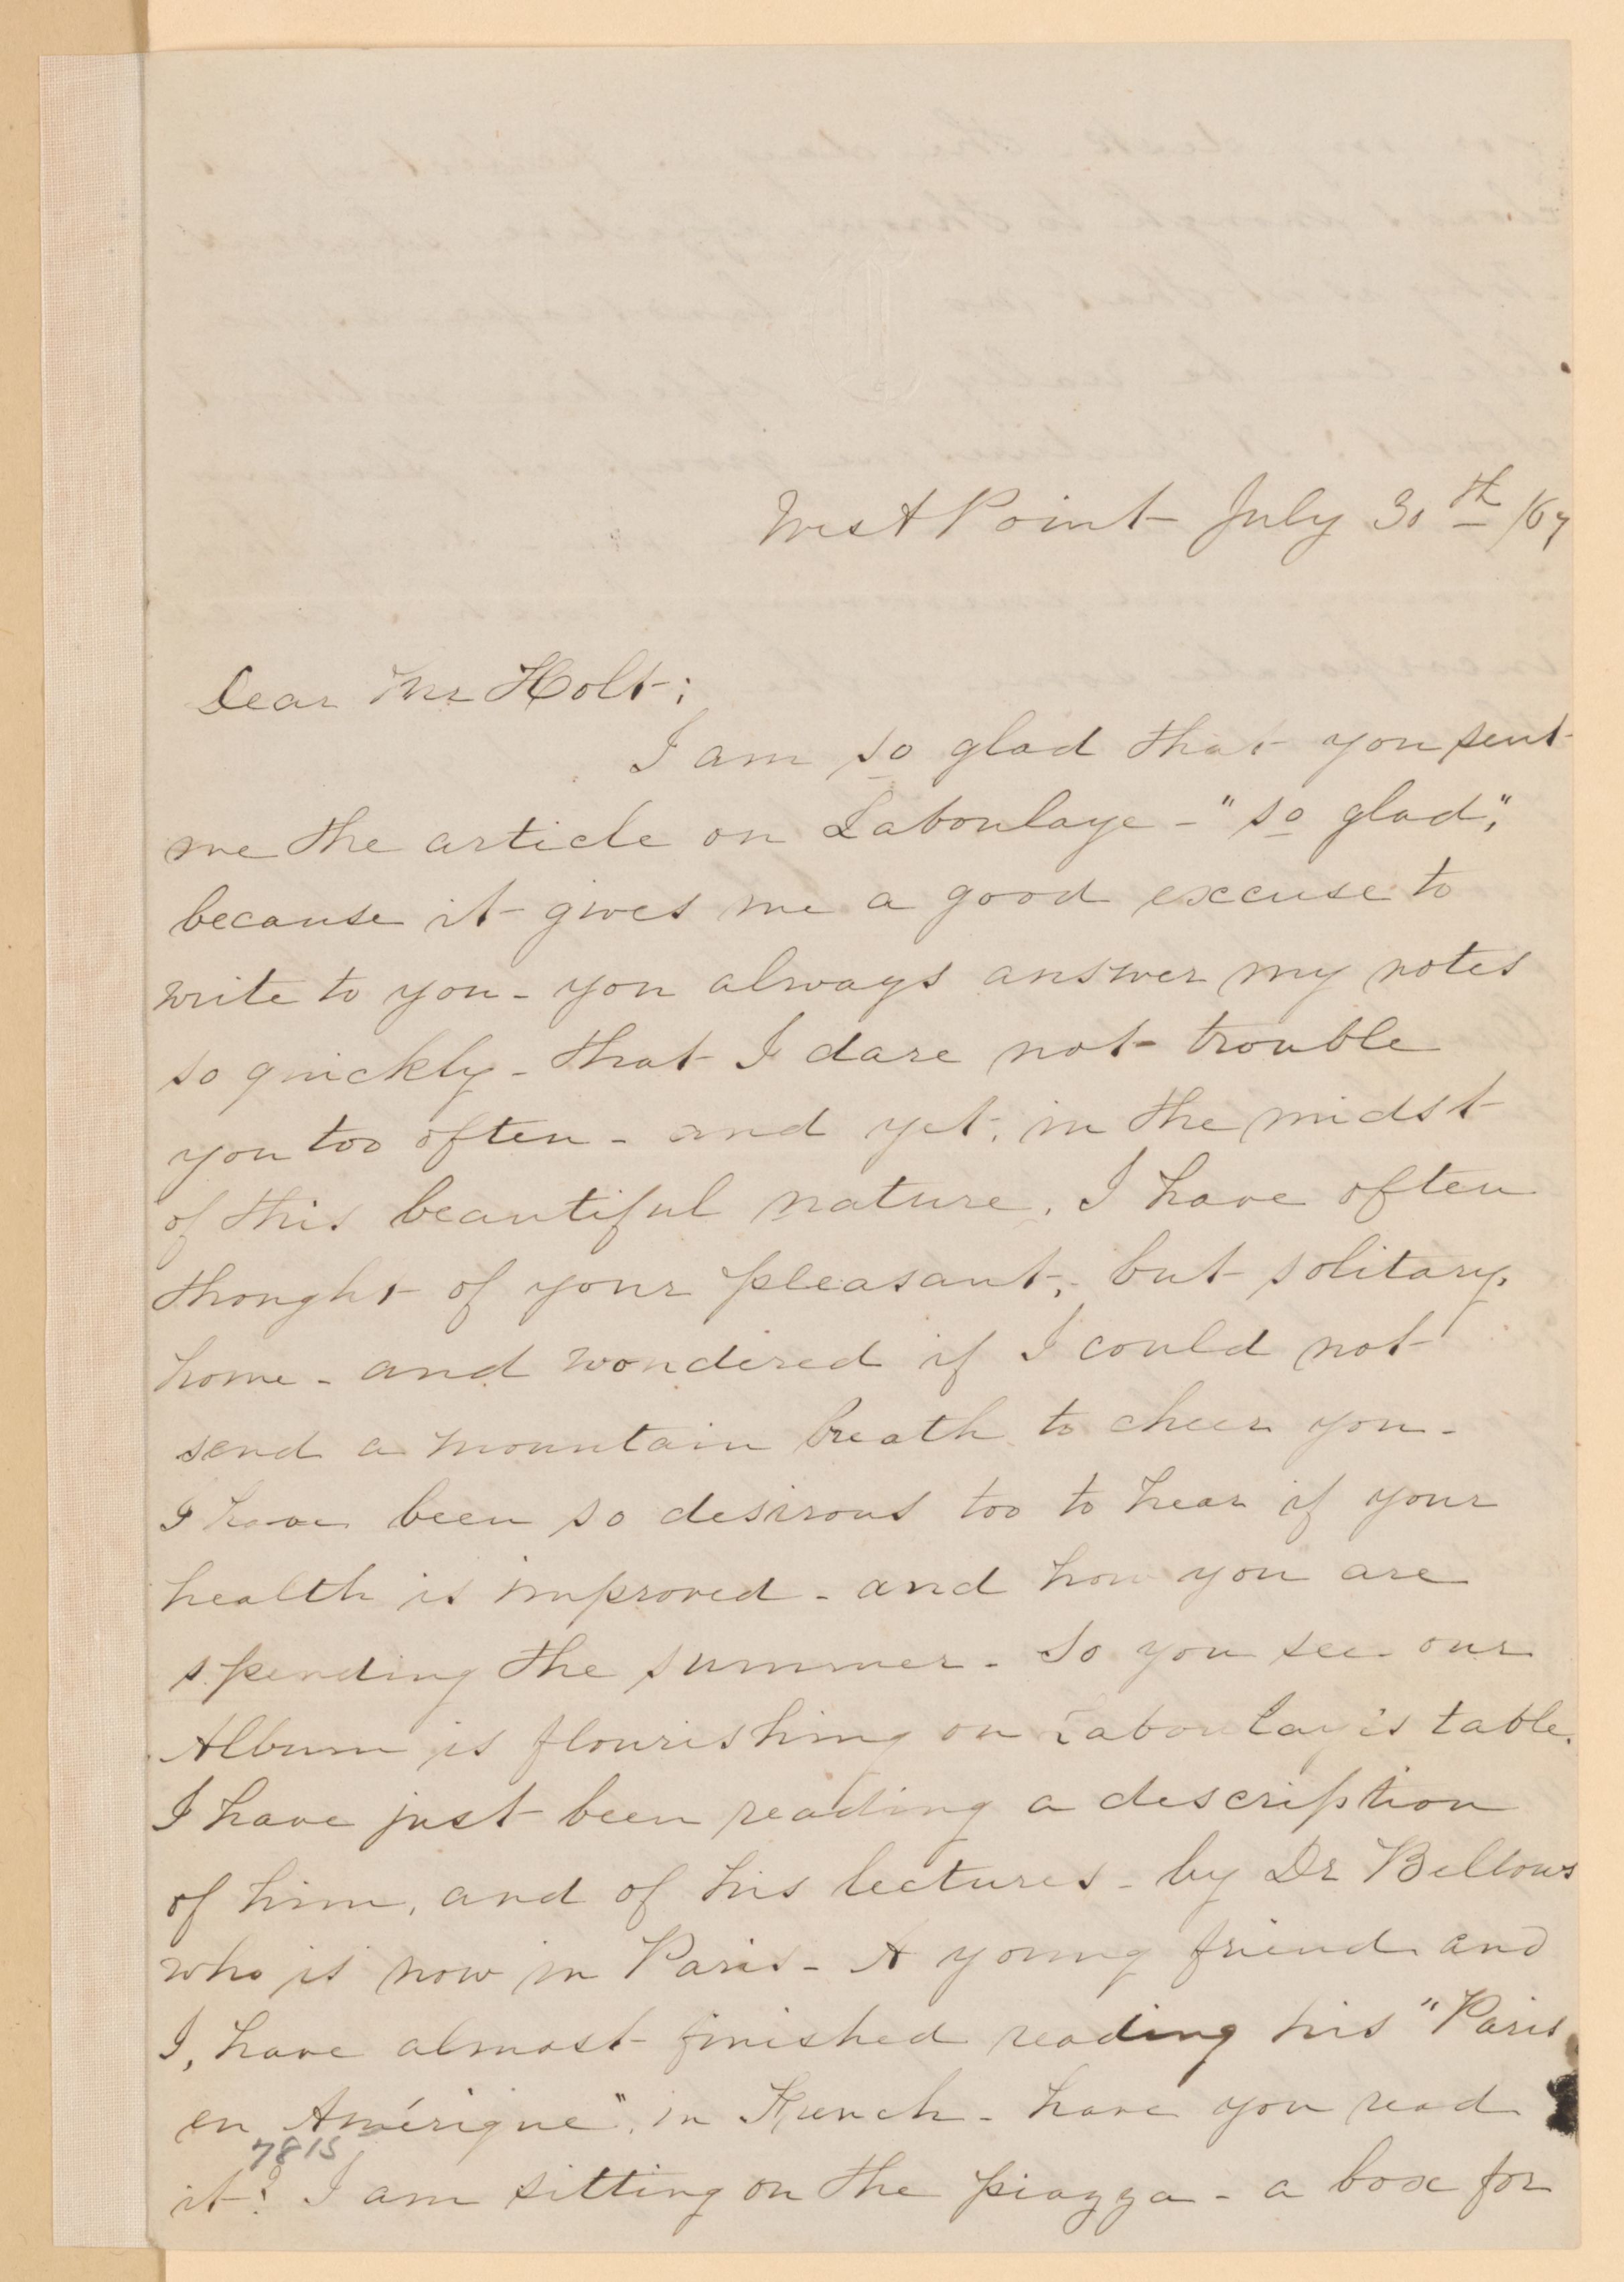 West Point July 30th /67
Dear Mr Holt;
I am so glad that you sent
me the article on Laboulaye - "so glad",
because it gives me a good excuse to
write to you - you always answer my notes
so quickly - that I dare not trouble
you too often - and yet, in the midst
of this beautiful nature, I have often
thought of your pleasant, but solitary,
home - and wondered if I could not
send a mountain breath to cheer you -
I have been so desirous too to hear if your
health is improved - and how you are
spending the summer - So you see our
Album is flourishing on Laboulay's table.
I have just been reading a description
of him, and of his lectures - by Dr Bellows
who is now in Paris - A young friend and
I, have almost finished reading his "Paris
en Amérique", in French - have you read
7815
it? I am sitting on the piazza - a box for